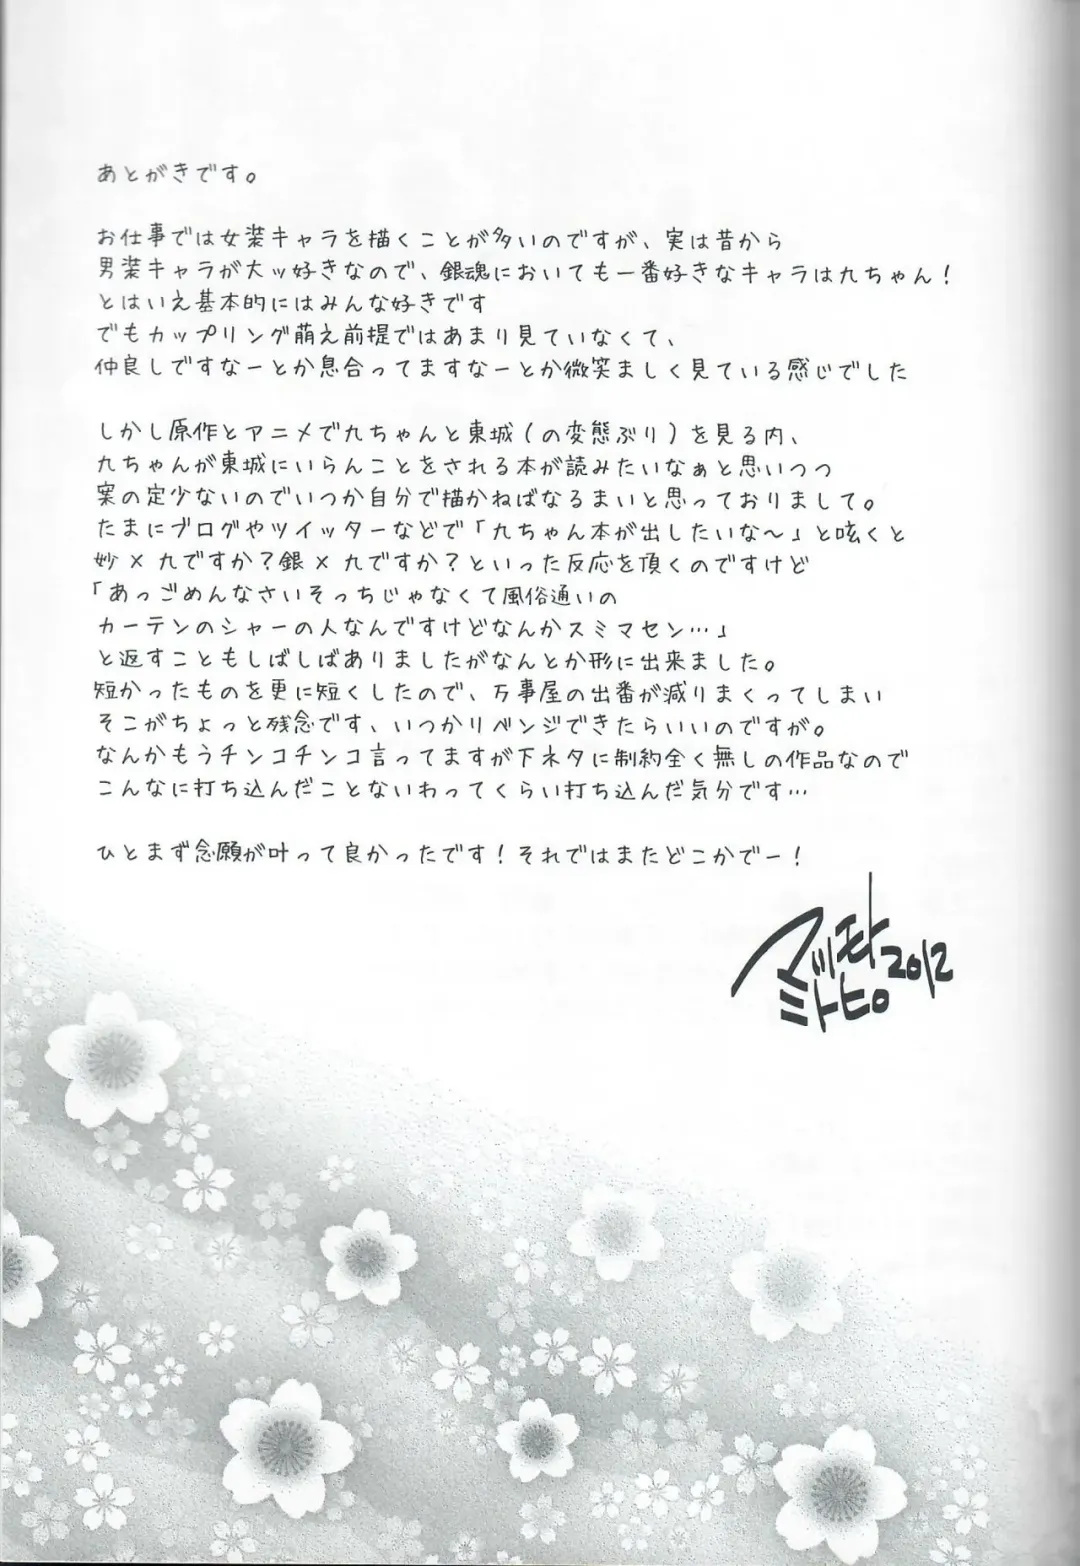 あとがきです。
お仕事では女装キャラを描くことが多いのですが、実は昔から
男装キャラが大ッ好きなので、銀魂においても一番好きなキャラは九ちゃん！
とはいえ基本的にはみんな好きです
でもカップリング萌え前提ではあまり見ていなくて、
仲良しですなーとか息合ってますなーとか微笑ましく見ている感じでした
しかし原作とアニメで九ちゃんと東城（の変態ぶり）を見る内、
九ちゃんが東城にいらんことをされる本が読みたいなぁと思いつつ
案の定少ないのでいつか自分で描かねばなるまいと思っておりまして。
たまにブログやツイッターなどで「九ちゃん本が出したいな～」と呟くと
妙×九ですか？銀×九ですか？といった反応を頂くのですけど
「あっごめんなさいそっちじゃなくて風俗通いの
カーテンのシャーの人なんですけどなんかスミマセン…」
と返すこともしばしばありましたがなんとか形に出来ました。
短かったものを更に短くしたので、万事屋の出番が減りまくってしまい
そこがちょっと残念です、いつかリベンジできたらいいのですが。
なんかもうチンコチンコ言ってますが下ネタに制約全く無しの作品なので
こんなに打ち込んだことないわってくらい打ち込んだ気分です…
ひとまず念願が叶って良かったです！それではまたどこかでー！
マツモト2012
ミトヒ。